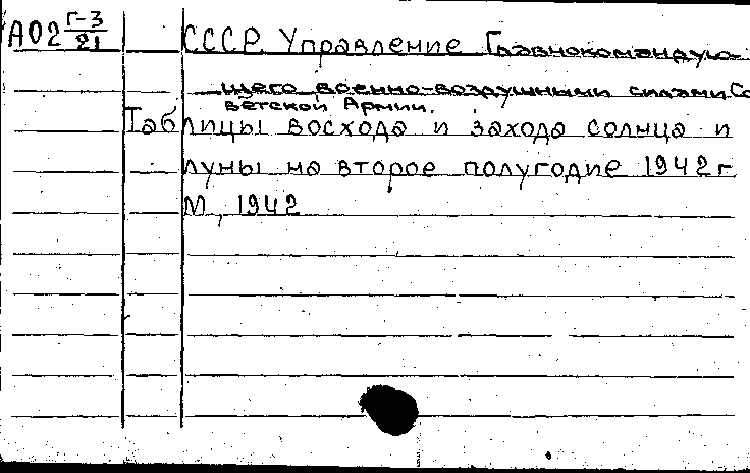 А02 Г-3/21
СССР. Управление Главнокомандую-
щего военно-воздушными силами Со
ветской Армии.
Таблицы восхода и захода солнца и
луны на второе полугодие 1942 г
М, 1942